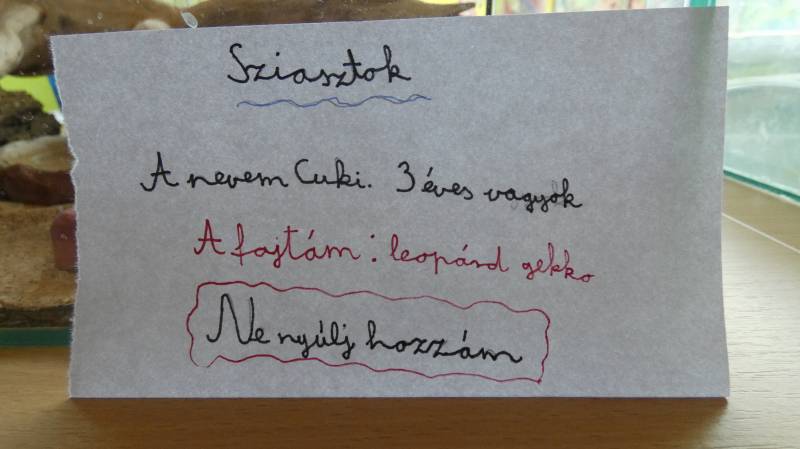 Sziasztok
A nevem Cuki. 3 éves vagyok
A fajtám: leopárd gekko
Ne nyúlj hozzám